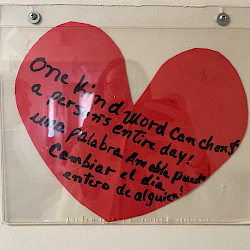 One Kind Word Can change
a persons entire day!
una palabra Amable puede
Cambiar el dia
entero de alguien!